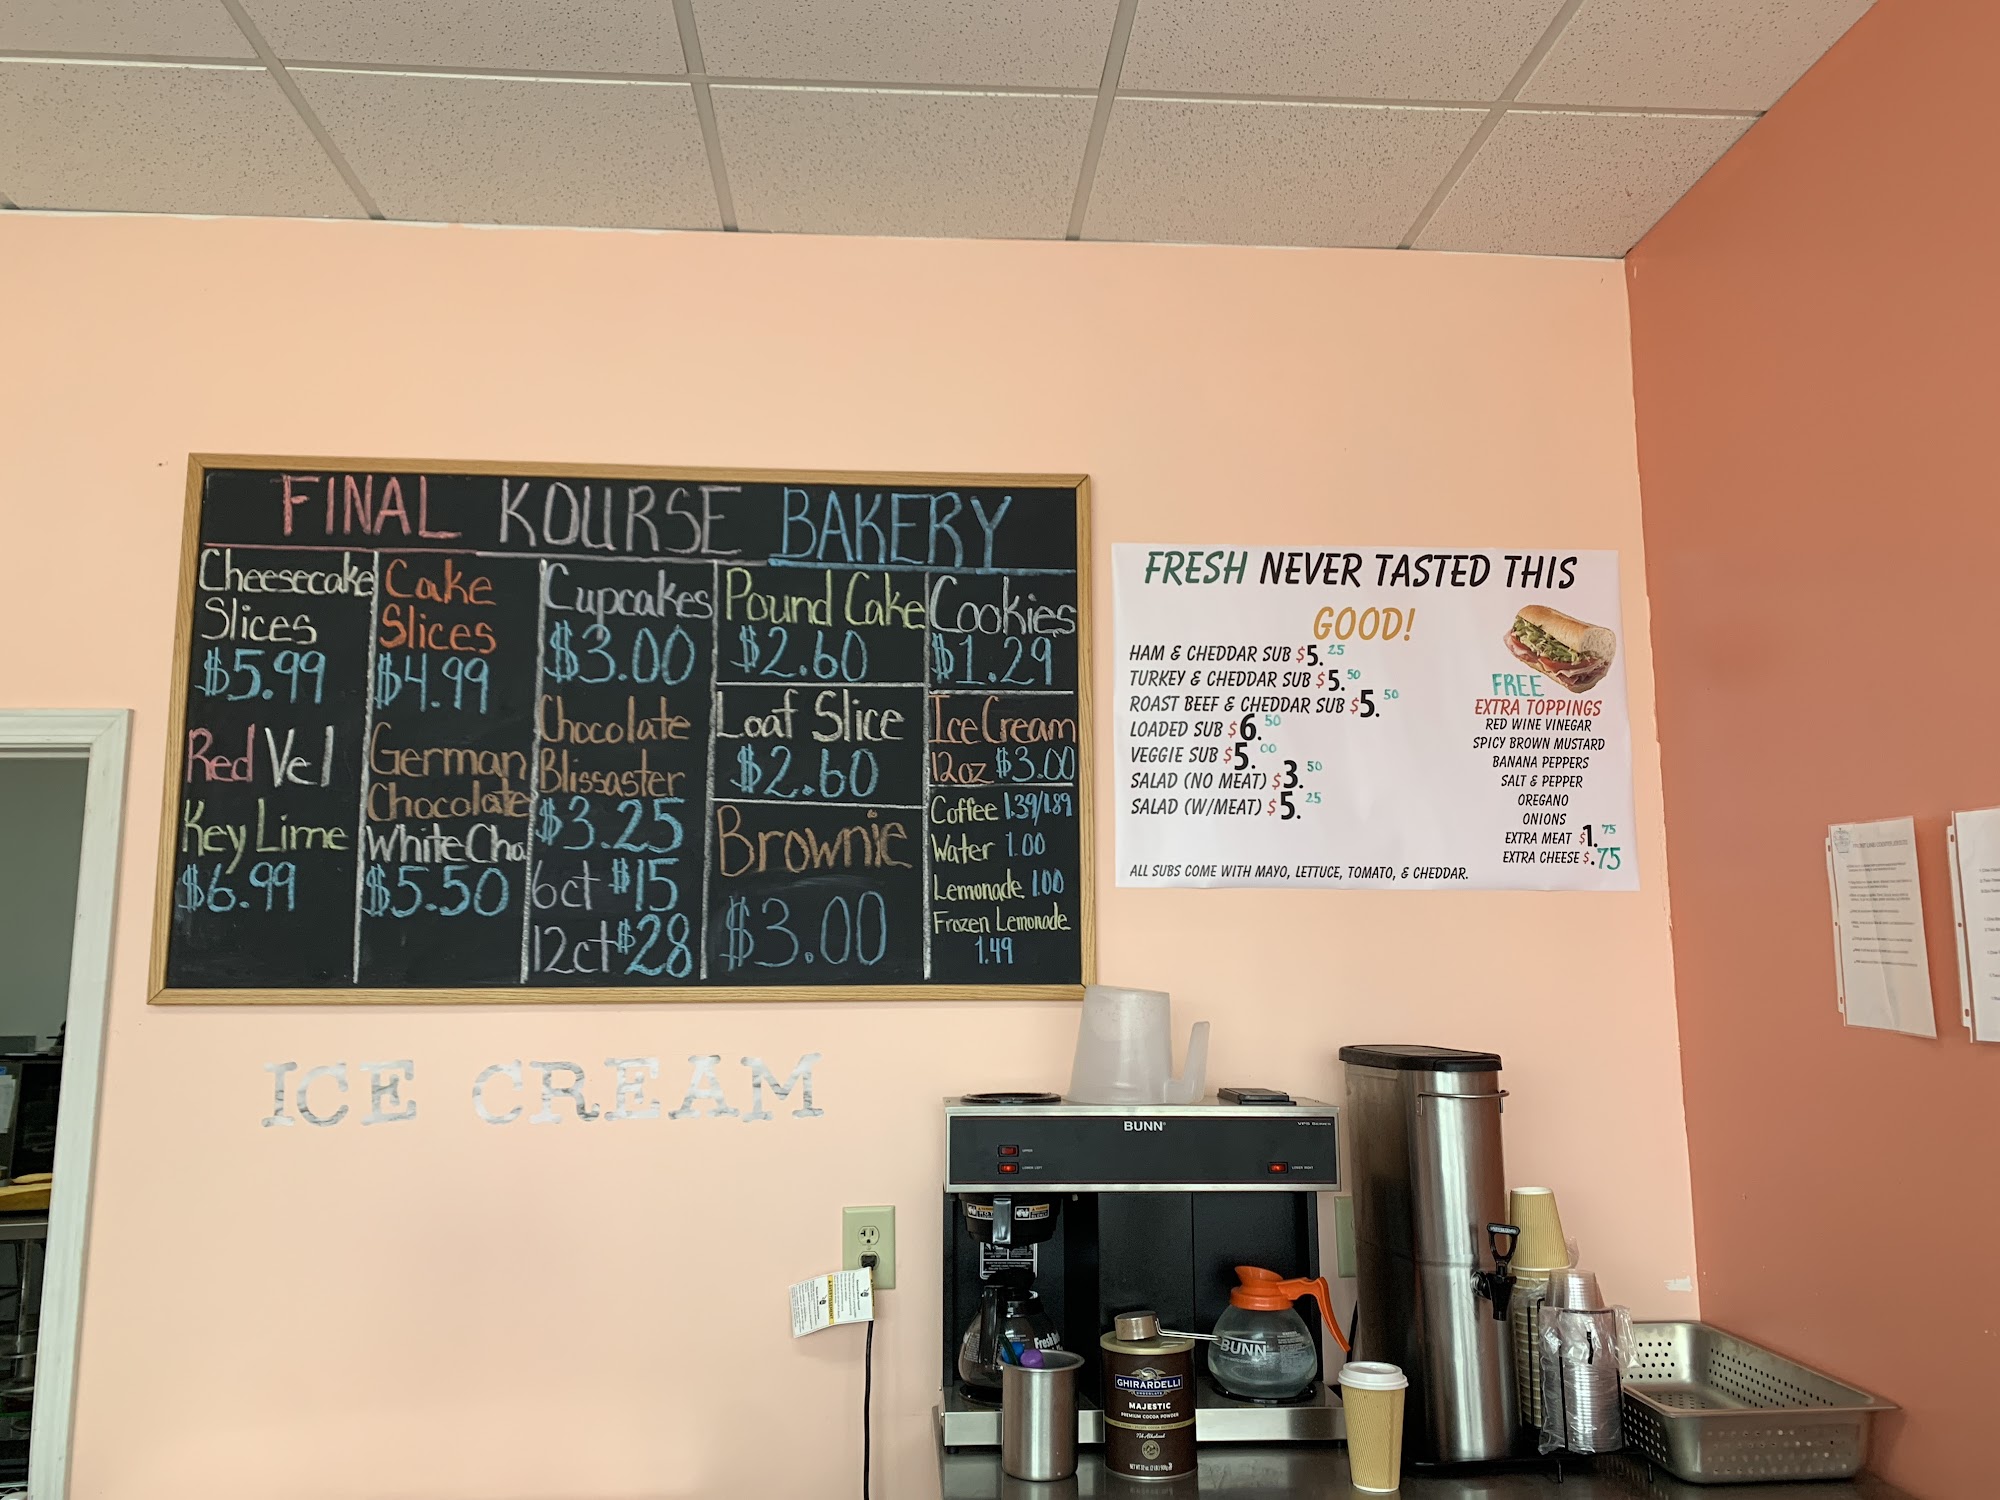 FINAL KOURSE BAKERY
Cheesecake
Slices
$5.99
Red Vel
Key Lime
$6.99
Cake
Slices
$4.99
German
Chocolate
White Cho.
$5.50
Cupcakes
$3.00
Chocolate
Blissaster
$3.25
6ct $15
12ct $28
Pound Cake
$2.60
Loaf Slice
$2.60
Brownie
$3.00
Cookies
$1.29
Ice Cream
12oz $3.00
Coffee 1.39/1.89
Water 1.00
Lemonade 1.00
Frozen Lemonade
1.49
FRESH NEVER TASTED THIS
GOOD!
HAM & CHEDDAR SUB $5.25
TURKEY & CHEDDAR SUB $5.50
ROAST BEEF & CHEDDAR SUB $5.50
LOADED SUB $6.50
VEGGIE SUB $5.00
SALAD (NO MEAT) $3.50
SALAD (W/MEAT) $5.25
ALL SUBS COME WITH MAYO, LETTUCE, TOMATO, & CHEDDAR.
FREE
EXTRA TOPPINGS
RED WINE VINEGAR
SPICY BROWN MUSTARD
BANANA PEPPERS
SALT & PEPPER
OREGANO
ONIONS
EXTRA MEAT $1.75
EXTRA CHEESE $.75
ICE CREAM
BUNN
VPS SERIES
UPPER
LOWER LEFT
LOWER RIGHT
BUNN
GHIRARDELLI
CHOCOLATE
MAJESTIC
PREMIUM COCOA POWDER